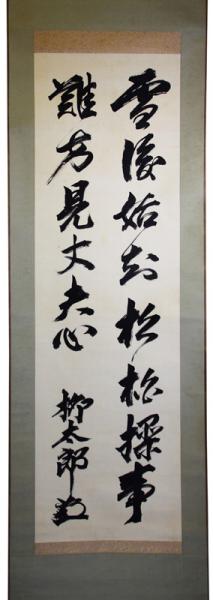 雪後始知松柏操事
難方見丈夫心
柳太郎